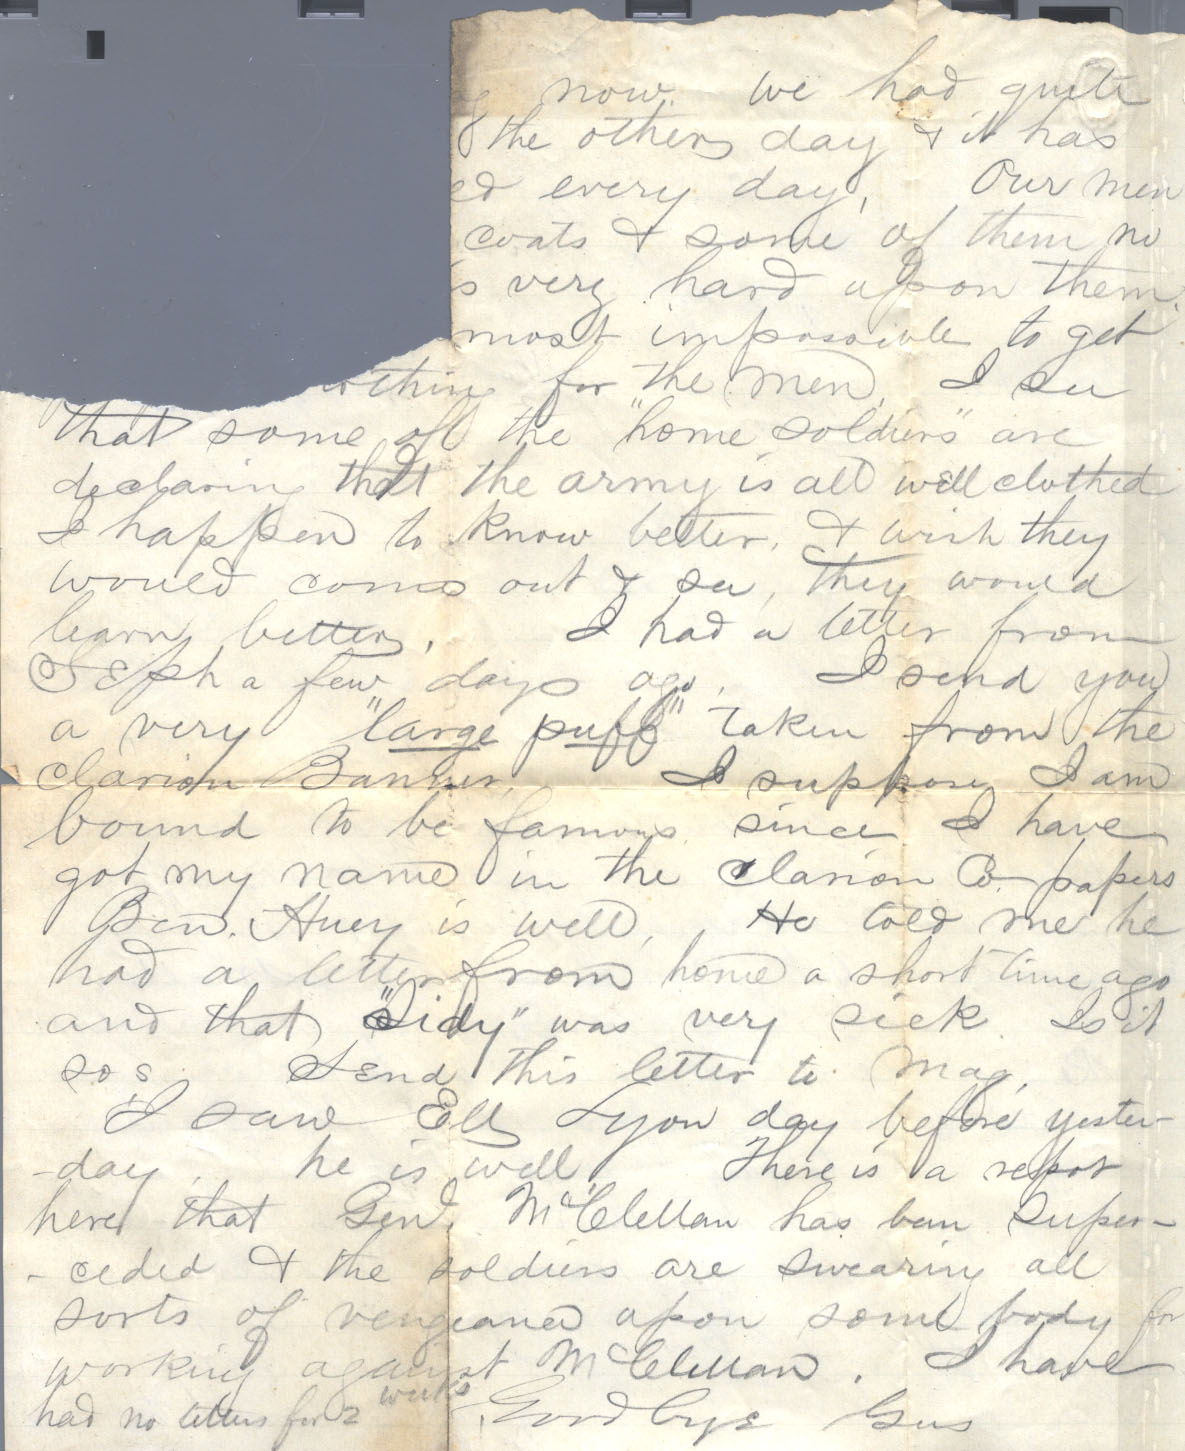 now. We had quite
the other day & it has
ed every day, Our men
coats & some of them no
s very hard upon them.
most impossible to get
othing for the men, I see
that some of the "home soldiers" are
declaring that the army is all well clothed
I happen to know better. I wish they
would come out & see, they would
learn better. I had a letter from
Seph a few days ago. I send you
a very "large puff" taken from the
Clarion Banner. I suppose I am
bound to be famous since I have
got my name in the Clarion Co. papers
Ben. Huey is well, He told me he
had a letter from home a short time ago
and that "Sidy" was very sick. Is it
so? Send this letter to Mag.
I saw Ell Lyon day before yester-
-day. he is well. There is a repot
here that Gen. McClellan has been super-
-ceded & the soldiers are swearing all
sorts of vengeance upon some body for
working against McClellan. I have
had no letters for 2 weeks Goodbye Gus